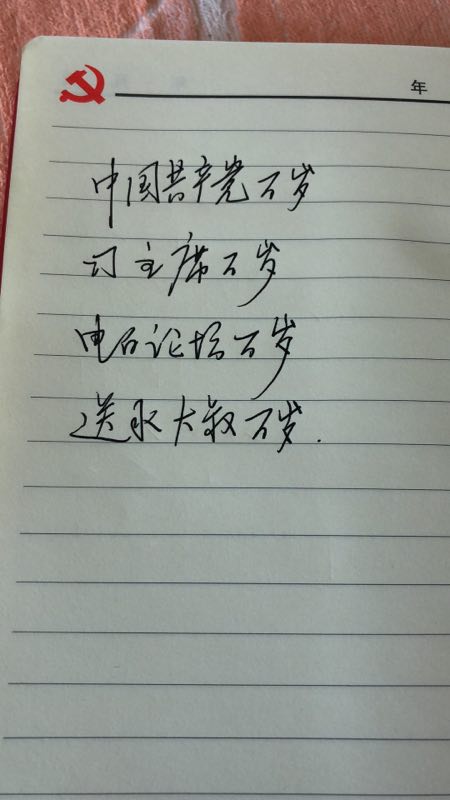 年
中国共产党万岁
习主席万岁
电石论坛万岁
送水大叔万岁.